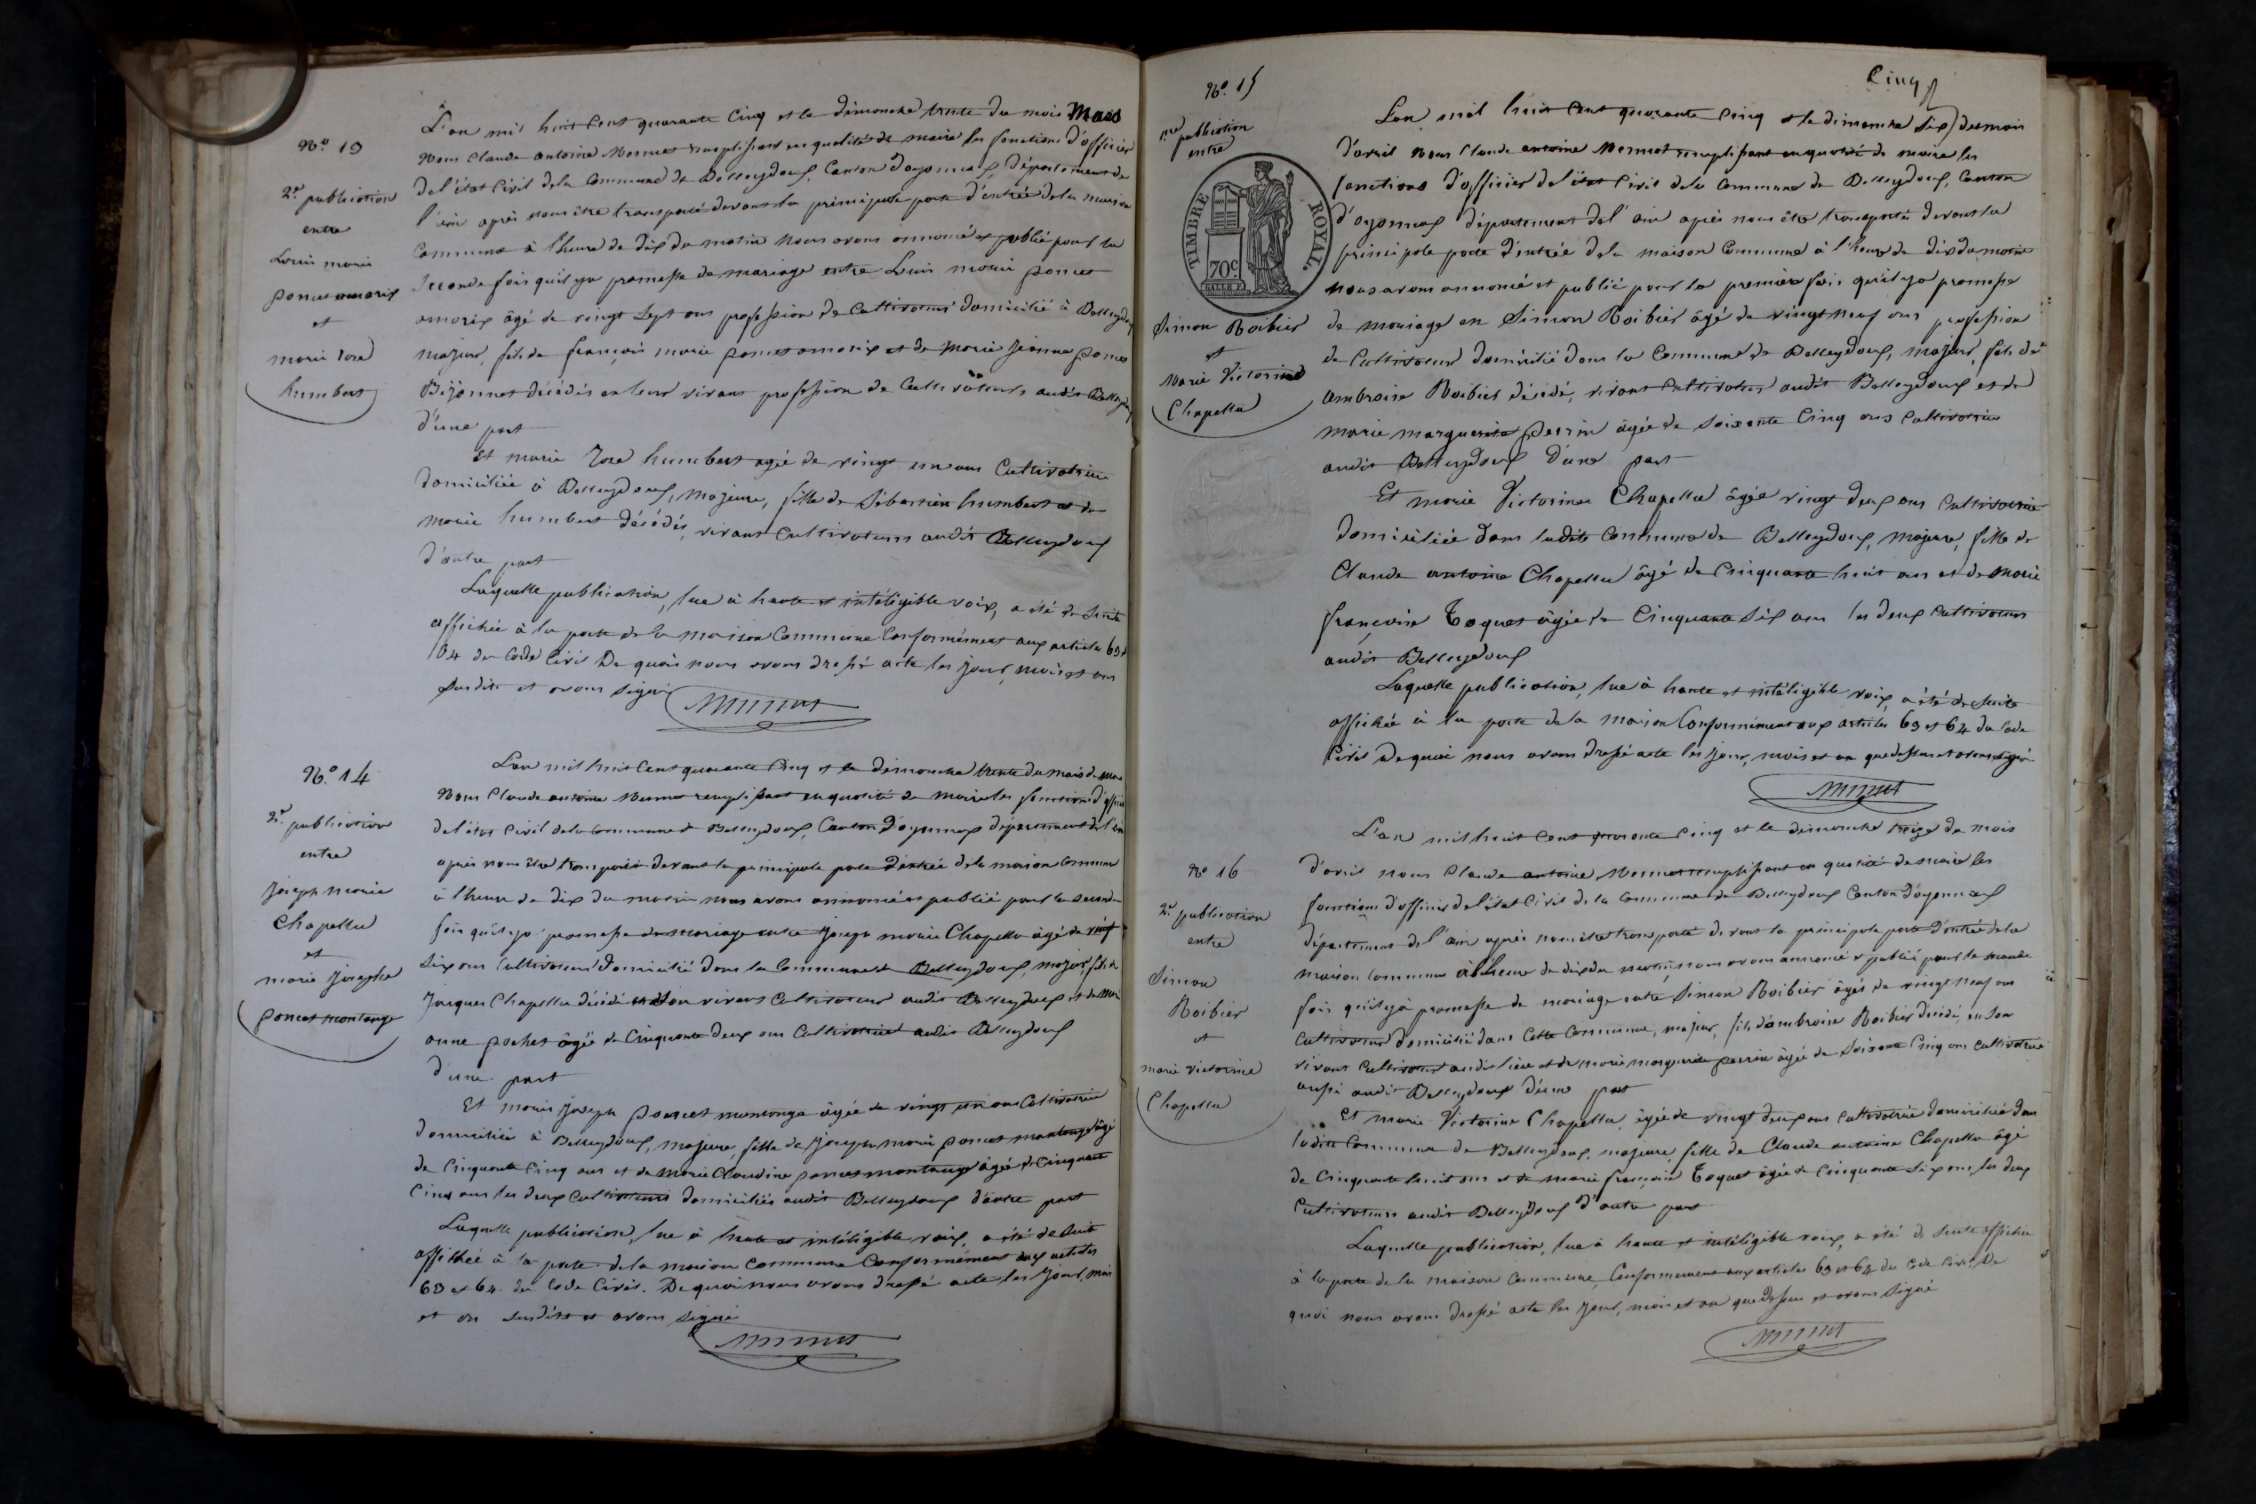 L'an mil huit cent quarante cinq et le dimanche trente du mois Mars
Nous Claude antoine Mermet remplissant en qualité de maire les fonctions d'officier
de l'état Civil de la Commune de Belleydoux, Canton d'oyonnax, département de
l'ain après nous être transporté devant la principale porte d'entrée de la maison
Commune à l'heure de dix du matin nous avons annoncé et publié pour la
seconde fois qu'il y a promesse de mariage entre Louis marie poncet
amarix âgé de vingt sept ans profession de Cultivateur domicilié à Belleydoux
majeur, fils de françois marie poncet amarix et de Marie Jeanne poncet
Bijonnet décédés en leur vivant profession de Cultivateurs audit Belleydoux
d'une part
Et marie rose humbert agée de vingt un ans Cultivatrice
domiciliée à Belleydoux, Majeure, fille de Sébastien humbert et de
Marie humbert décédés, vivant Cultivateurs audit Belleydoux
d'autre part
Laquelle publication, lue à haute et intéligible voix, a été de suite
affichée à la porte de la maison Commune Conformément aux articles 63 et
64 du Code Civil De quoi nous avons dressé acte les jour, mois et an
susdits et avons signé
Mermet
No. 13
2e. publication
entre
Louis marie
poncet amarix
et
marie rose
humbert
L'an mil huit Cent quarante Cinq et le dimanche trente du mois de mars
Nous Claude antoine Mermet remplissant en qualité de Maire les fonctions d'officier
de l'état Civil de la Commune de Belleydoux, Canton d'oyonnax département de l'ain
après nous être transporté devant la principale porte d'entrée de la maison commune
à l'heure de dix du matin nous avons annoncé et publié pour la seconde
fois qu'il y a promesse de mariage entre Joseph marie Chapellu âgé de vingt
six ans Cultivateur domicilié dans la Commune de Belleydoux, majeur, fils de
Jacques Chapellu décédé en son vivant Cultivateur audit Belleydoux et de Marie
anne pochet âgée de Cinquante deux ans Cultivatrice audit Belleydoux
d'une part
Et Marie Joseph poncet montange âgée de vingt un ans Cultivatrice
domiciliée à Belleydoux, majeure, fille de Joseph marie poncet montange âgé
de Cinquante Cinq ans et de Marie Claudine poncet montange âgée de Cinquante
Cinq ans les deux Cultivateurs domiciliés audit Belleydoux d'autre part
Laquelle publication, lue à haute et intéligible voix, a été de suite
affichée à la porte de la maison Commune Conformément aux articles
63 et 64 du Code Civil. De quoi nous avons dressé acte les jour, mois
et an susdits et avons signé
Mermet
No. 14
2e. publication
entre
Joseph marie
Chapellu
et
marie Josephe
poncet montange
Cinq
No. 15
1re publication
entre
TIMBRE ROYAL.
70c.
Simon Roibier
et
Marie Victorine
Chapellu
L'an mil huit Cent quarante Cinq et le dimanche six du mois
d'avril Nous Claude antoine Mermet remplissant en qualité de maire les
fonctions d'officier de l'état Civil de la Commune de Belleydoux, Canton
d'oyonnax département de l'ain après nous être transporté devant la
principale porte d'entrée de la maison Commune à l'heure de dix du matin
nous avons annoncé et publié pour la première fois qu'il y a promesse
de mariage en Simon Roibier âgé de vingt neuf ans profession
de Cultivateur domicilié dans la Commune de Belleydoux, majeur, fils de
ambroise Roibier décédé, vivant Cultivateur audit Belleydoux et de
marie marguerite perrin âgée de soixante Cinq ans Cultivatrice
audit Belleydoux d'une part
Et marie Victorine Chapellu âgée vingt deux ans Cultivatrice
domiciliée dans ladite Commune de Belleydoux, majeure, fille de
Claude antoine Chapellu âgé de Cinquante huit ans et de Marie
françoise Toquet âgée de Cinquante six ans les deux Cultivateurs
audit Belleydoux
Laquelle publication, lue à haute et intéligible voix, a été de suite
affichée à la porte de la maison Conformément aux articles 63 et 64 du Code
Civil De quoi nous avons dressé acte les jour, mois et an que dessus et avons signé
Mermet
L'an mil huit Cent quarante Cinq et le dimanche treize du mois
d'avril nous Claude antoine Mermet remplissant en qualité de maire les
fonctions d'officier de l'état Civil de la Commune de Belleydoux Canton d'oyonnax
département de l'ain après nous être transporté devant la principale porte d'entrée de la
maison Commune à l'heure de dix du matin, nous avons annoncé et publié pour la seconde
fois qu'il y à promesse de mariage entre Simon Roibier âgés de vingt neuf ans
Cultivateur domicilié dans Cette Commune, majeur, fils d'ambroise Roibier décédé, en son
vivant Cultivateur audit lieu et de marie marguerite perrin âgée de soixante Cinq ans Cultivatrice
aussi audit Belleydoux d'une part
Et marie Victorine Chapellu âgée de vingt deux ans Cultivatrice domiciliée dans
ladite Commune de Belleydoux, majeure, fille de Claude antoine Chapellu âgé
de Cinquante huit ans et de marie françoise Toquet âgée de Cinquante six ans, les deux
Cultivateurs audit Belleydoux d'autre part
Laquelle publication, lue à haute et intéligible voix, a été de suite affichée
à la porte de la maison Commune, Conformément aux articles 63 et 64 du Code Civil De
quoi nous avons dressé acte les jour, mois et an que dessus et avons signé
Mermet
No 16
2e. publication
entre
Simon
Roibier
et
marie victorine
Chapellu